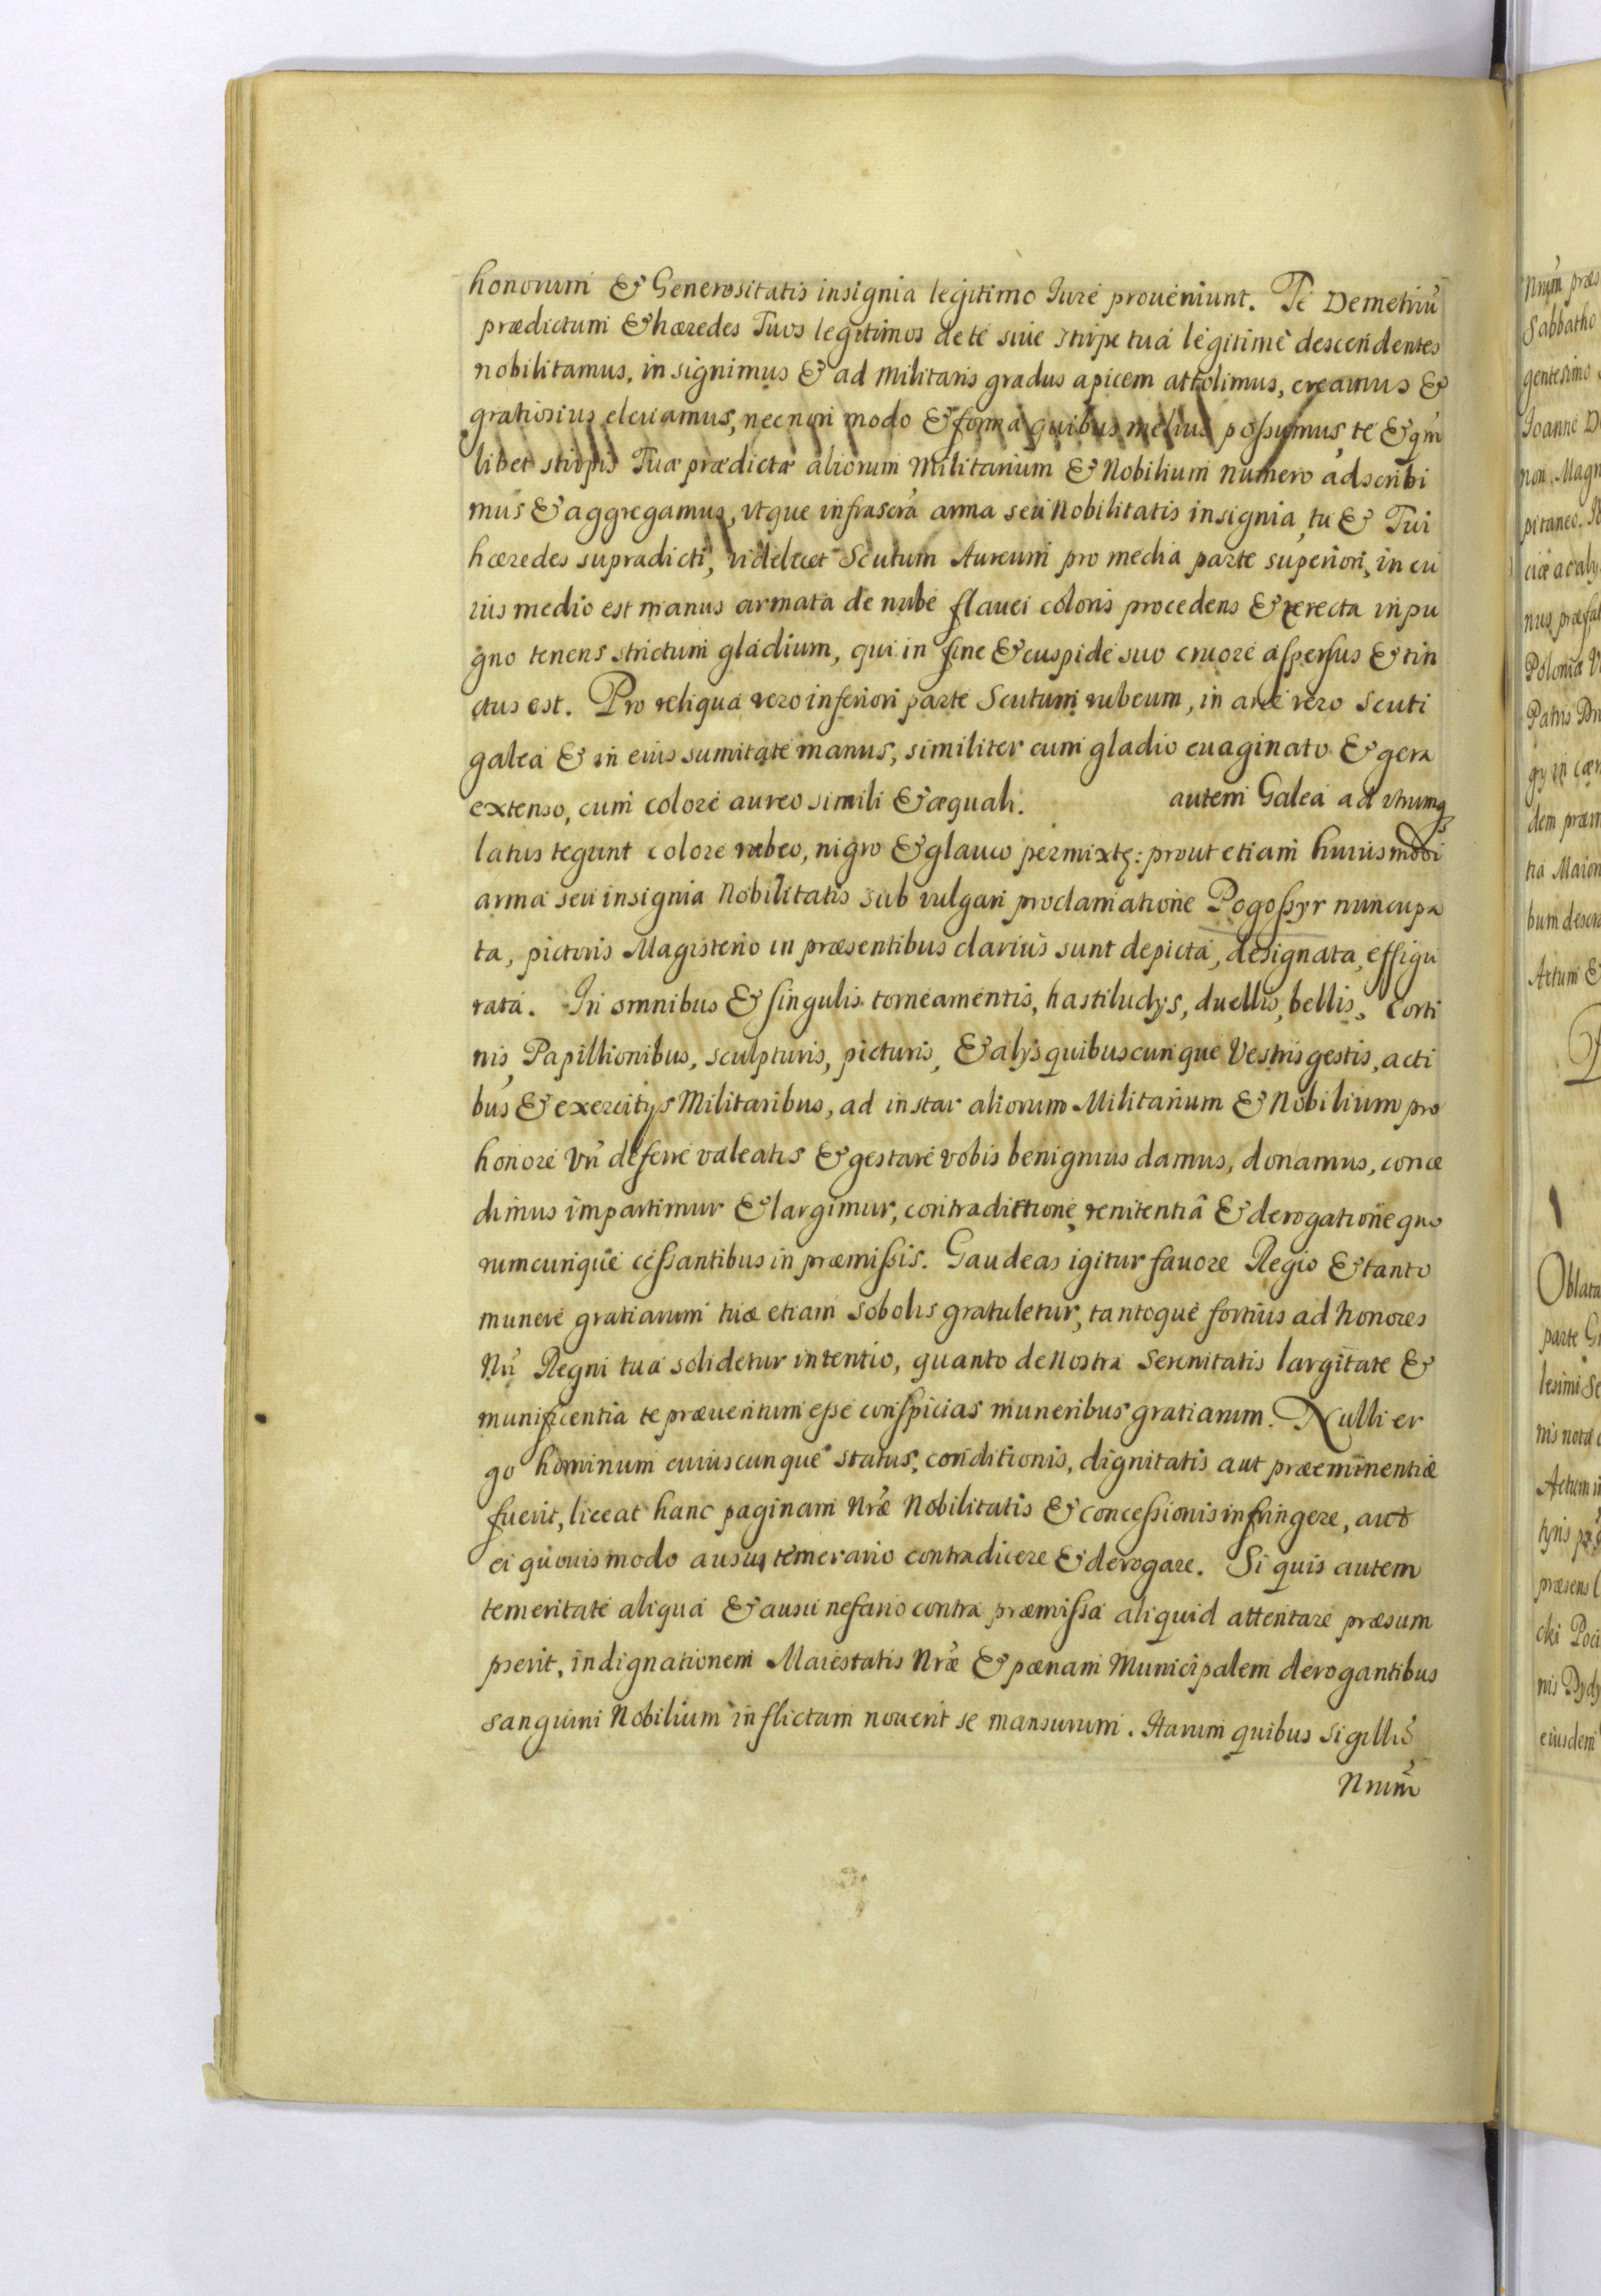 honorum & Generositatis insignia legitimo Jure proueniunt. Te Demetriũ
prædictum & hæredes Tuos legitimos de te siue stirpe tua legitime descendentes
nobilitamus, insignimus & ad Militaris gradus apicem attolimus, creamus &
gratiosius eleuamus, necnon modo & forma quibus melius possumus te & qm̃
libet stirpis Tuæ prædictæ aliorum Militarium & Nobilium numero adscribi
mus & aggregamus, vt que infrascrã arma seu Nobilitatis insignia, tu & Tui
hæredes supradicti, videlicet Scutum Aureum pro media parte superiori, in cu
ius medio est manus armata de nube flauei coloris procedens & erecta in pu
gno tenens strictum gladium, qui in fine & cuspide suo cruore aspersus & tin
ctus est. Pro reliqua vero inferiori parte Scutum rubeum, in arce vero Scuti
galea & in eius sumitate manus, similiter cum gladio euaginato & gera
extenso, cum colore aureo simili & æquali. autem Galea ad vtrumq
latus tegunt colore rubeo, nigro & glauco permixtę: prout etiam huiusmodi
arma seu insignia Nobilitatis sub vulgari proclamatione Pogossyr nuncupa
ta, pictoris Magisterio in præsentibus clarius sunt depicta, designata, effigu
rata. In omnibus & singulis torneamentis, hastiludys, duellis, bellis, Corti
nis, Papillionibus, sculpturis, picturis, & alys quibuscunque Vestris gestis, acti
bus & exercitys Militaribus, ad instar aliorum Militarium & Nobilium pro
honore Vrĩ deferre valeatis & gestare vobis benignius damus, donamus, conce
dimus impartimur & largimur, contradictione, renitentiâ & derogatione quo
rumcunque cessantibus in præmissis. Gaudeas igitur fauore Regio & tanto
munere gratiarum tuæ etiam Sobolis gratuletur, tantoque fortius ad honores
Nrĩ Regni tua solidetur intentio, quanto de Nostra Serenitatis largitate &
munificentia te præuentum esse conspicias muneribus gratiarum. Nulli er
go hominum cuiuscunque status, conditionis, dignitatis aut præeminentiæ
fuerit, liceat hanc paginam Nræ Nobilitatis & concessionis infringere, aut
ei quouis modo ausu temerario contradicere & derogare. Si quis autem
temeritate aliqua & ausu nefario contra præmissa aliquid attentare præsum
pserit, indignationem Maiestatis Nræ & pænam Municipalem derogantibus
sanguini Nobilium inflictam nouerit se mansurum. Harum quibus sigillũ
Nrum̃